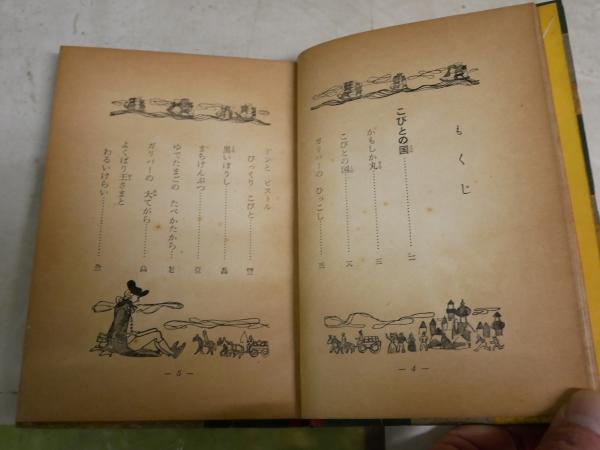 もくじ
こびとの国…………
かもしか丸…………
こびとの国…………
ガリバーの ひっこし……
ドンと ピストル
びっくり こびと……
黒いぼうし…………
まちけんぶつ…………
ゆでたまごの たべかたから…
ガリバーの 大てがら……
よくばり王さまと
わるいけらい…………
— 4 —
— 5 —